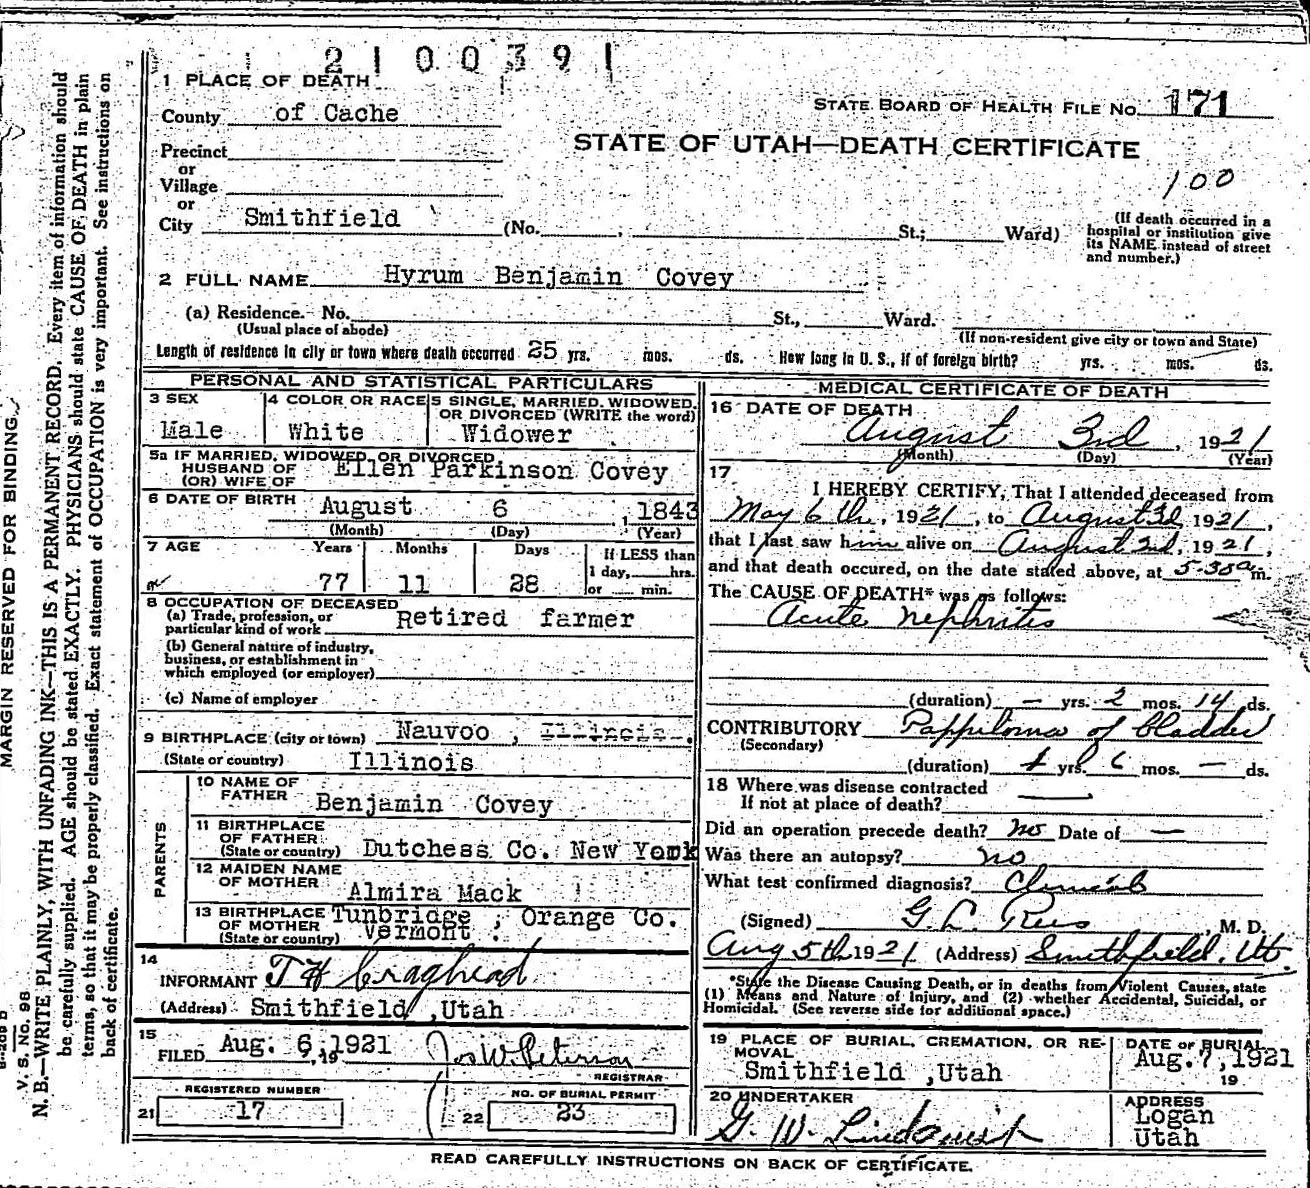 2100391
1 PLACE OF DEATH
STATE BOARD OF HEALTH FILE No. 171
County of Cache
STATE OF UTAH—DEATH CERTIFICATE
Precinct
or
Village
100
or
City Smithfield (No. ; St.; Ward)
(If death occurred in a
hospital or institution give
its NAME instead of street
and number.)
2 FULL NAME Hyrum Benjamin Covey
(a) Residence. No. St., Ward.
(Usual place of abode)
(If non-resident give city or town and State)
Length of residence in city or town where death occurred 25 yrs. mos. ds. How long in U. S., if of foreign birth? yrs. mos. ds.
PERSONAL AND STATISTICAL PARTICULARS
3 SEX
Male
4 COLOR OR RACE
White
5 SINGLE, MARRIED, WIDOWED,
OR DIVORCED (WRITE the word)
Widower
5a IF MARRIED, WIDOWED, OR DIVORCED
HUSBAND OF Ellen Parkinson Covey
(OR) WIFE OF
6 DATE OF BIRTH August 6, 1843
(Month) (Day) (Year)
7 AGE Years Months Days If LESS than
1 day, hrs.
77 11 28 or min.
8 OCCUPATION OF DECEASED
(a) Trade, profession, or
particular kind of work Retired farmer
(b) General nature of industry,
business, or establishment in
which employed (or employer)
(c) Name of employer
9 BIRTHPLACE (city or town) Nauvoo , Illinois.
(State or country) Illinois
PARENTS
10 NAME OF
FATHER Benjamin Covey
11 BIRTHPLACE
OF FATHER
(State or country) Dutchess Co. New York
12 MAIDEN NAME
OF MOTHER Almira Mack
13 BIRTHPLACE Tunbridge , Orange Co.
OF MOTHER Vermont .
(State or country)
14
INFORMANT T H Craghead
(Address) Smithfield ,Utah
15
FILED Aug. 6, 1921 , 19 Jos W. Peterson
REGISTRAR
REGISTERED NUMBER
21 17
NO. OF BURIAL PERMIT
22 23
MEDICAL CERTIFICATE OF DEATH
16 DATE OF DEATH
August 3rd, 1921
(Month) (Day) (Year)
17
I HEREBY CERTIFY, That I attended deceased from
May 6th, 1921, to August 3d 1921,
that I last saw him alive on August 2nd, 1921,
and that death occured, on the date stated above, at 5-30 a m.
The CAUSE OF DEATH* was as follows:
Acute nephritis
(duration) — yrs. 2 mos. 14 ds.
CONTRIBUTORY Pappiloma of bladder
(Secondary)
(duration) 1 yrs. 6 mos. — ds.
18 Where was disease contracted
If not at place of death?
Did an operation precede death? no Date of —
Was there an autopsy? no
What test confirmed diagnosis? Clinical
(Signed) G. L. Rees, M. D.
Aug 5th 1921 (Address) Smithfield, Ut.
*State the Disease Causing Death, or in deaths from Violent Causes, state
(1) Means and Nature of Injury, and (2) whether Accidental, Suicidal, or
Homicidal. (See reverse side for additional space.)
19 PLACE OF BURIAL, CREMATION, OR RE-
MOVAL
Smithfield ,Utah
DATE OF BURIAL
Aug.7,1921
19
20 UNDERTAKER
G. W. Lindquist
ADDRESS
Logan
Utah
READ CAREFULLY INSTRUCTIONS ON BACK OF CERTIFICATE.
MARGIN RESERVED FOR BINDING.
V. S. No. 98
N. B.—WRITE PLAINLY, WITH UNFADING INK—THIS IS A PERMANENT RECORD. Every item of information should
be carefully supplied. AGE should be stated EXACTLY. PHYSICIANS should state CAUSE OF DEATH in plain
terms, so that it may be properly classified. Exact statement of OCCUPATION is very important. See instructions on
back of certificate.